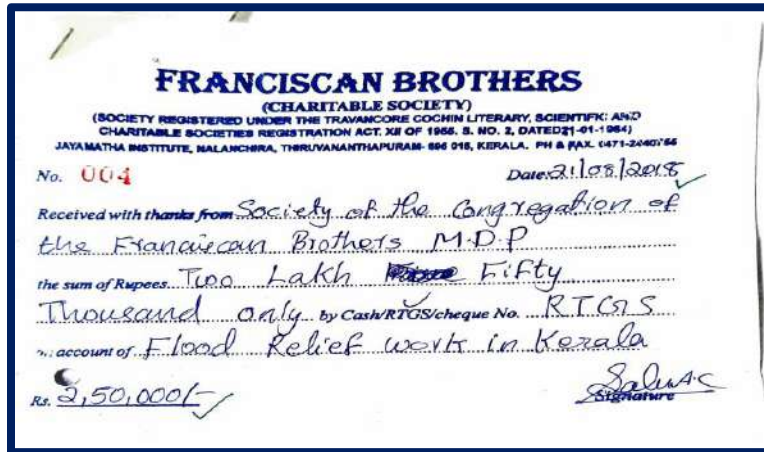 FRANCISCAN BROTHERS
(CHARITABLE SOCIETY)
(SOCIETY REGISTERED UNDER THE TRAVANCORE COCHIN LITERARY, SCIENTIFIC AND
CHARITABLE SOCIETIES REGISTRATION ACT. XII OF 1955. S. NO. 2, DATED21-01-1984)
JAYAMATHA INSTITUTE, NALANCHIRA, THIRUVANANTHAPURAM- 695 015, KERALA. PH & FAX. 0471-
No. 004 Date: 21/08/2018
Received with thanks from Society of the Congregation of
the Franciscan Brothers M.D.P
the sum of Rupees Two Lakh Fifty
Thousand only by Cash/RTGS/cheque No. RTGS
account of Flood Relief work in Kerala
Rs. 2,50,000/-
Signature